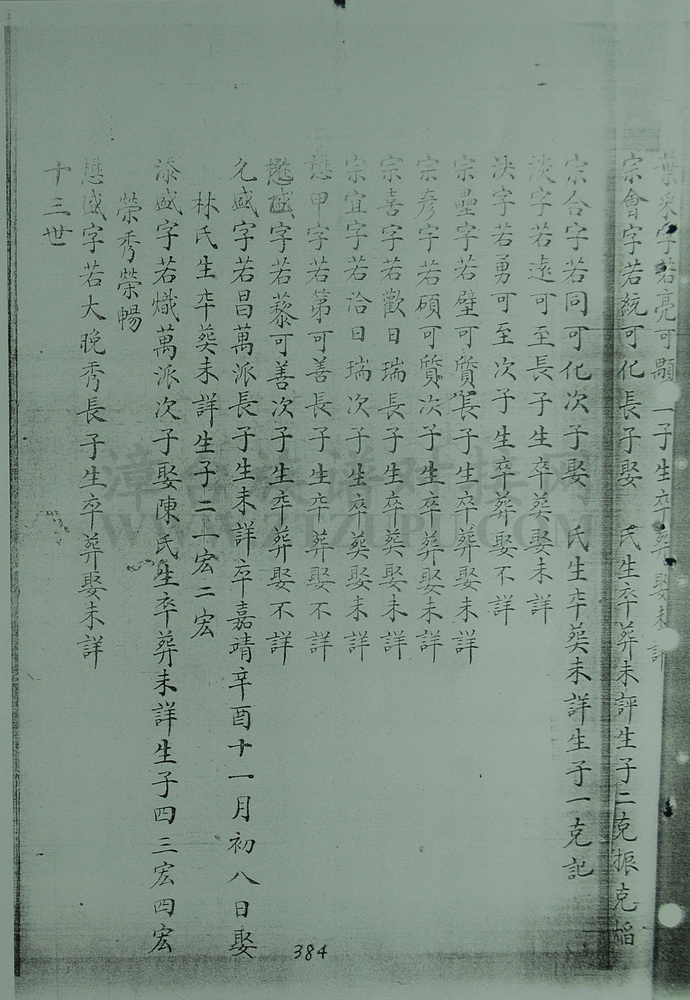 葉采字若亮可顯一子生卒葬娶未詳
宗會字若統可化長子娶 氏生卒葬未評生子二克振克韜
宗合字若同可化次子娶 氏生卒葬未詳生子一克記
淡字若遠可至長子生卒葬娶未詳
泱字若勇可至次子生卒葬娶不詳
宗壘字若璧可質長子生卒葬娶未詳
宗彥字若碩可質次子生卒葬娶未詳
宗喜字若歡日瑞長子生卒葬娶未詳
宗宜字若洽日瑞次子生卒葬娶未詳
懋甲字若第可善長子生卒葬娶不詳
懋盛字若藜可善次子生卒葬娶不詳
允盛字若昌萬派長子生未詳卒嘉靖辛酉十一月初八日娶
林氏生卒葬未詳生子二一宏二宏
添盛字若熾萬派次子娶陳氏生卒葬未詳生子四三宏四宏
榮秀榮暢
懋盛字若大晚秀長子生卒葬娶未詳
十三世
384
WWW.ZTZUPU.COM